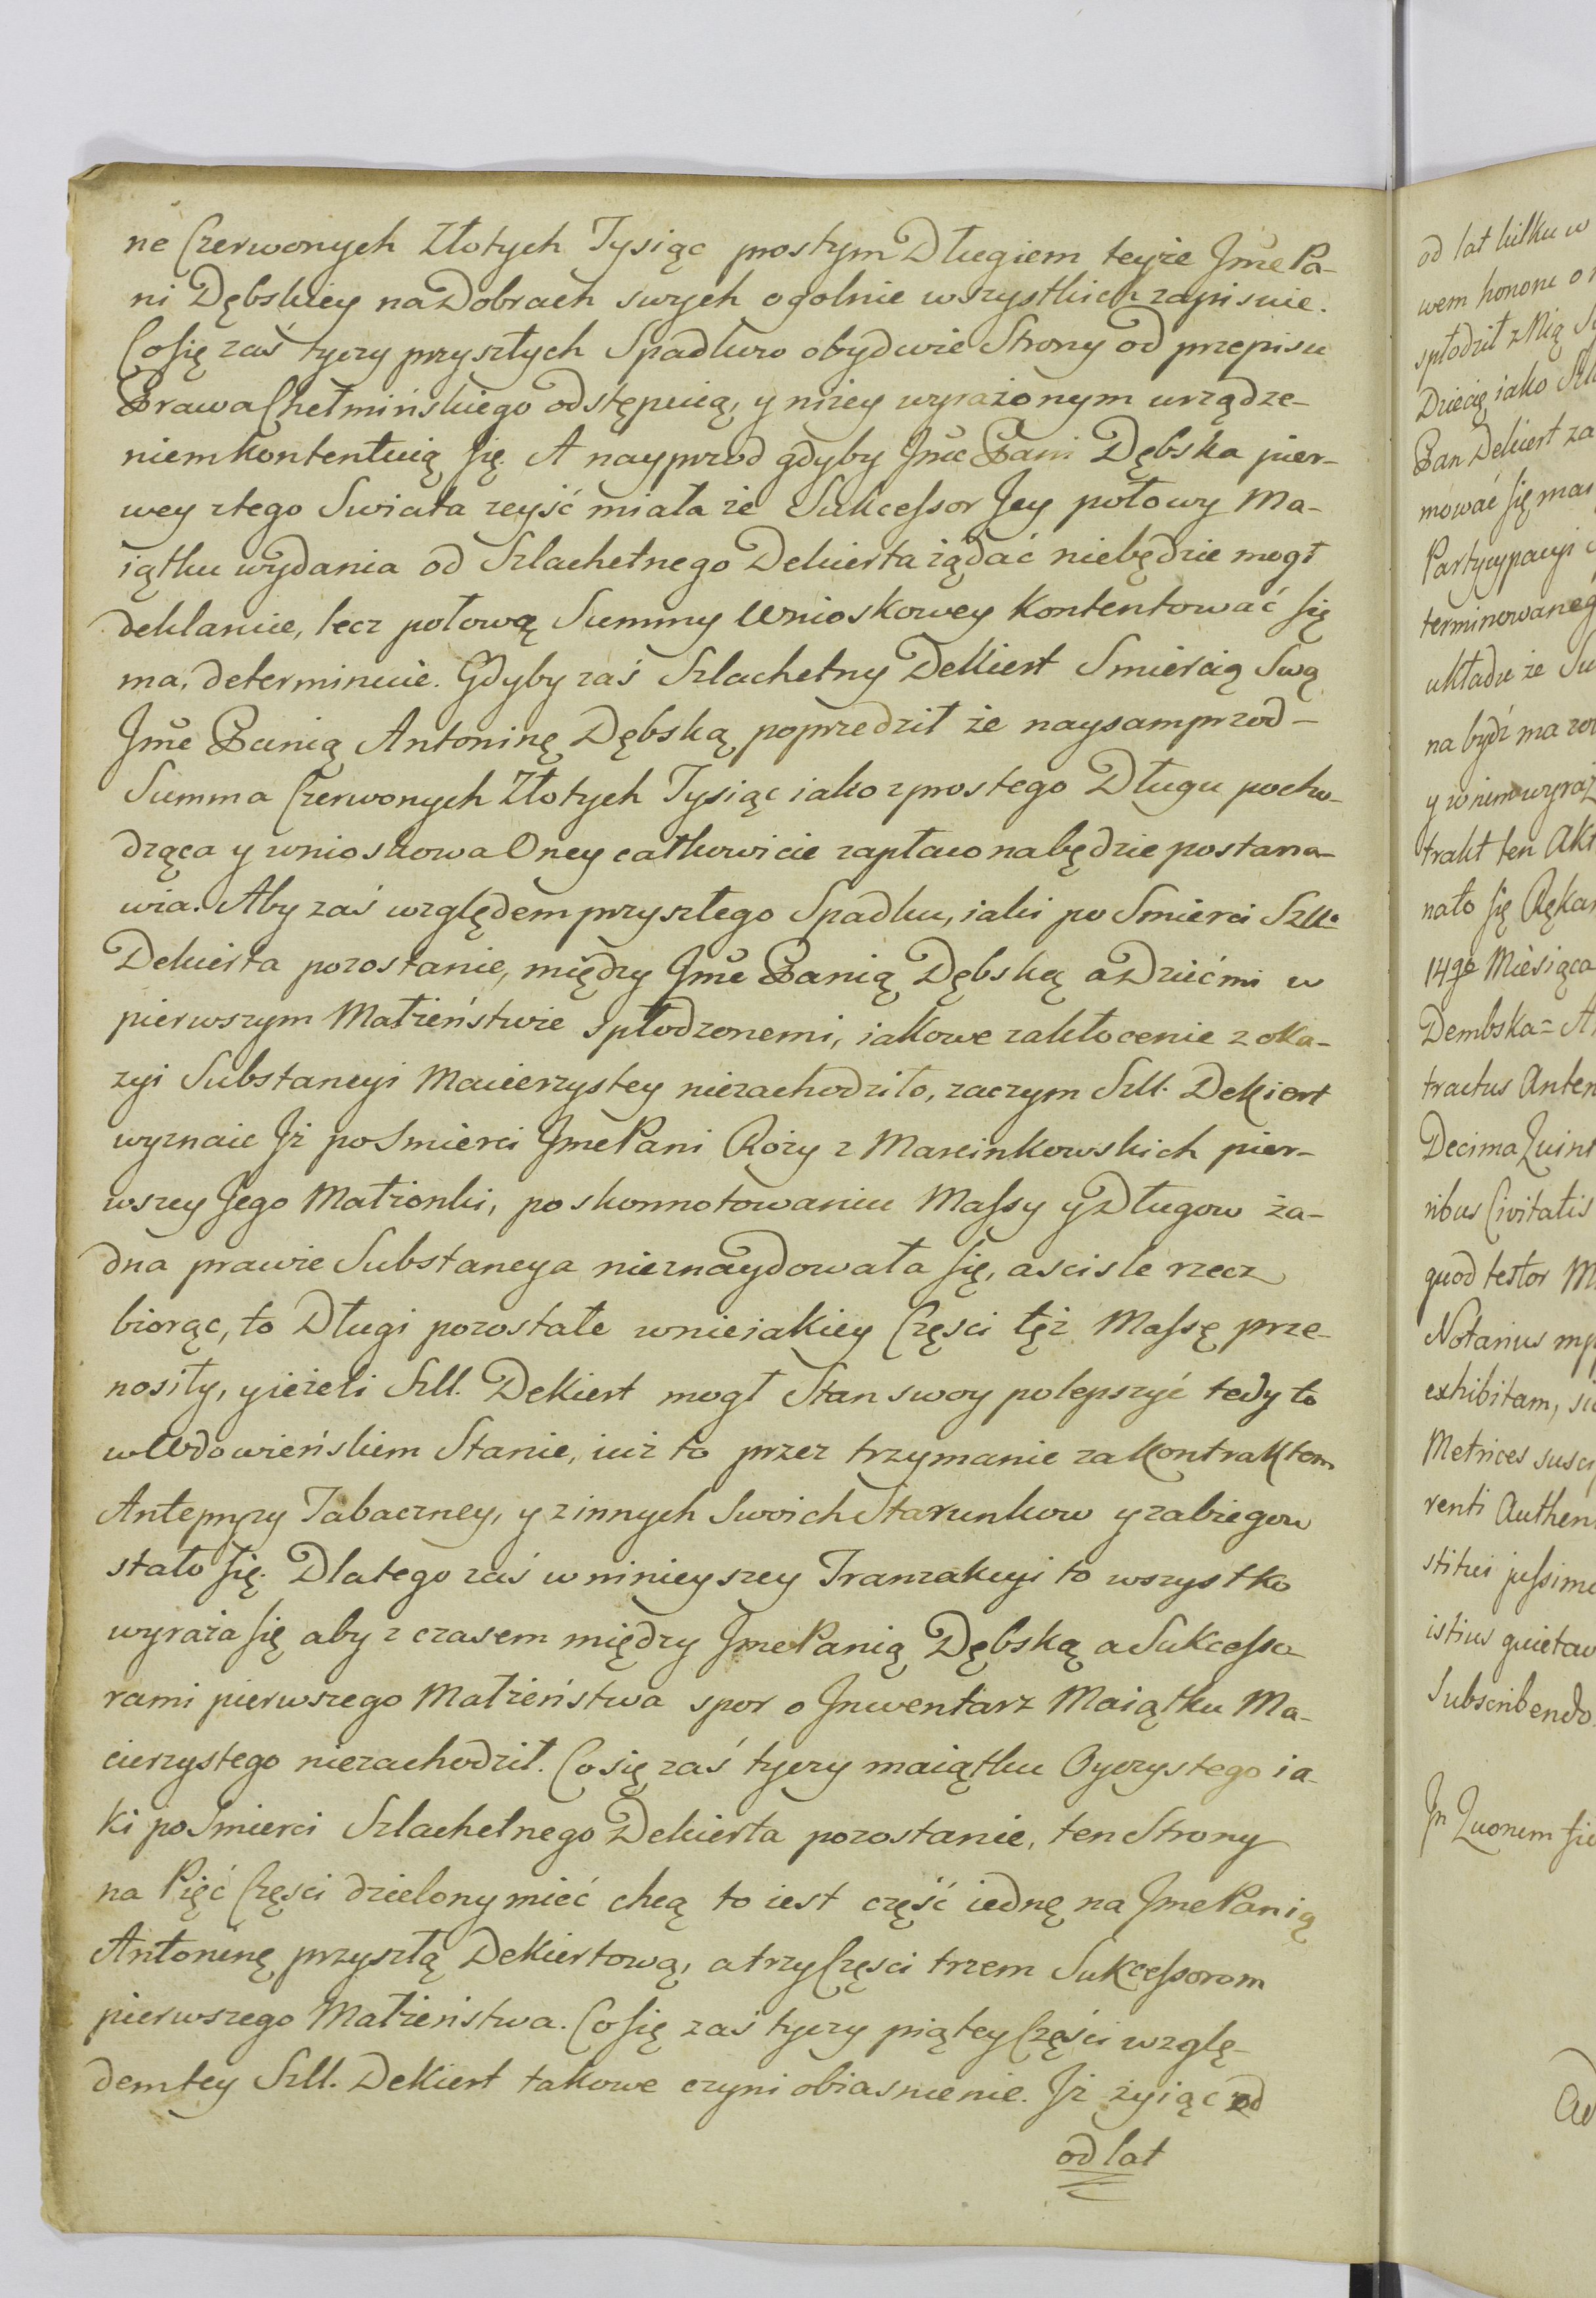 ne Czerwonych Złotych Tysiąc prostym Długiem teyże Jmć Pa-
ni Dębskiey na Dobrach swych ogolnie wszystkich zapisuie.
Co się zaś tyczy przyszłych Spadkow obydwie Strony od przepisu
Prawa Chełmińskiego odstępuią, y niżey wyrażonym urządze-
niem kontentuią się. A nayprzod gdyby Jmć Pani Dębska pier-
wey z tego Swiata zeyść miała że Sukcessor Jey połowy Ma-
iątku wydania od Szlachetnego Dekierta żądać niebędzie mogł
deklaruie, lecz połową Summy Wnioskowey kontentować się
ma, determinuie. Gdyby zaś Szlachetny Dekiert Smiercią Swą
Jmć Panią Antoninę Dębską poprzedził że naysamprzod -
Summa Czerwonych Złotych Tysiąc iako z prostego Długu pocho-
dząca y wnioskowa Oney całkowicie zapłacona będzie postana-
wia. Aby zaś względem przyszłego Spadku, iaki po Smierci Szll.
Dekierta pozostanie, między Jmć Panią Dębską a Dziećmi w
pierwszym Małżeństwie spłodzonemi, iakowe zakłocenie z oka-
zyi Substancyi Macierzystey niezachodziło, zaczym Szll. Dekiert
wyznaie Jż po Smierci Jmć Pani Rozy z Marcinkowskich pier-
wszey Jego Małżonki, po skonnotowaniu Massy y Długow ża-
dna prawie Substancya nieznaydowała się, a scisle rzecz
biorąc, to Długi pozostałe w nieiakiey Części tęż Massę prze-
nosiły, y ieżeli Szll. Dekiert mogł Stan swoy polepszyć tedy to
w Wdowieńskim Stanie, iuż to przez trzymanie za kontraktem
Antepryzy Tabaczney, y z innych Swoich Starunkow y zabiegow
stało się. Dlatego zaś w ninieyszey Tranzakcyi to wszystko
wyraża się aby z czasem między Jmć Panią Dębską a Sukcesso-
rami pierwszego Małżeństwa spor o Inwentarz Maiątku Ma-
cierzystego niezachodził. Co się zaś tyczy maiątku Oyczystego ia-
ki po Smierci Szlachetnego Dekierta pozostanie, ten Strony
na Pięć Części dzielony mieć chcą to iest część iednę na Jmć Panią
Antoninę przyszłą Dekiertową, a trzy Części trzem Sukcessorom
pierwszego Małżeństwa. Co się zaś tyczy piątey Części wzglę-
dem tey Szll. Dekiert takowe czyni obiasnienie. Jż żyiąc od
od lat
od lat kilku w
wem honoru
spłodził z Nią
Dziecię iako
Pan Dekiert za
mować się ma
Partycypacyi
terminowaneg
układu że Su
na bydź ma
y w nim wyraż
trakt ten Akt
nało się Ręka
14go Miesiąca
Dembska = A
tractus Anten
Decima Quint
ribus Civitatis
quod testor M
Notarius mp
exhibitam,
Metrices susci
renti Authen
stitui jussimu
istius quietav
Subscribendo
Jn Quorum